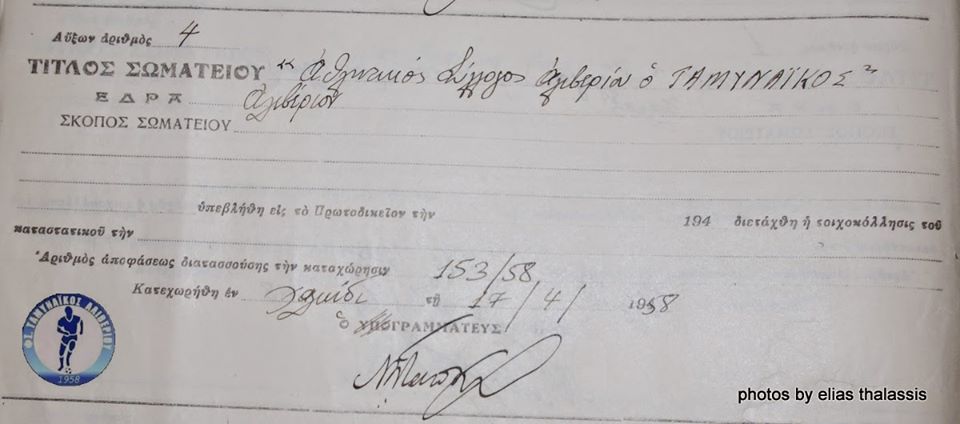 Αὔξων ἀριθμὸς 4
ΤΙΤΛΟΣ ΣΩΜΑΤΕΙΟΥ "Ἀθλητικός Σύλλογος Ἀλιβερίου ὁ ΤΑΜΥΝΑΪΚΟΣ"
ΕΔΡΑ Ἀλιβέριον
ΣΚΟΠΟΣ ΣΩΜΑΤΕΙΟΥ
ὑπεβλήθη εἰς τὸ Πρωτοδικεῖον τὴν 194 διετάχθη ἡ τοιχοκόλλησις τοῦ
καταστατικοῦ τὴν
Ἀριθμὸς ἀποφάσεως διατασσούσης τὴν καταχώρησιν 153/58
Κατεχωρήθη ἐν Χαλκίδι τῇ 17/4/1958
Ὁ ΥΠΟΓΡΑΜΜΑΤΕΥΣ
ΦΣ ΤΑΜΥΝΑΪΚΟΣ ΑΛΙΒΕΡΙΟΥ
1958
photos by elias thalassis